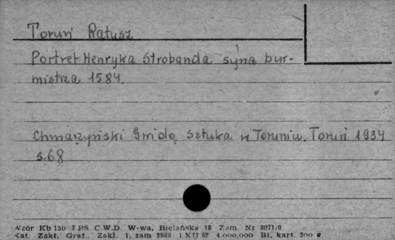 Toruń Ratusz.
Portret Henryka Strobanda syna bur-
mistrza 1584.
Chmarzyński Gwido, Sztuka w Toruniu. Toruń 1934
s.68
Wzór Kb 130 7 PS C.W.D. W-wa, Bielańska 18 Zam. Nr
Zakł. Graf. Zakł. 1, zam XII 52 4.000.000 Bl. kart.